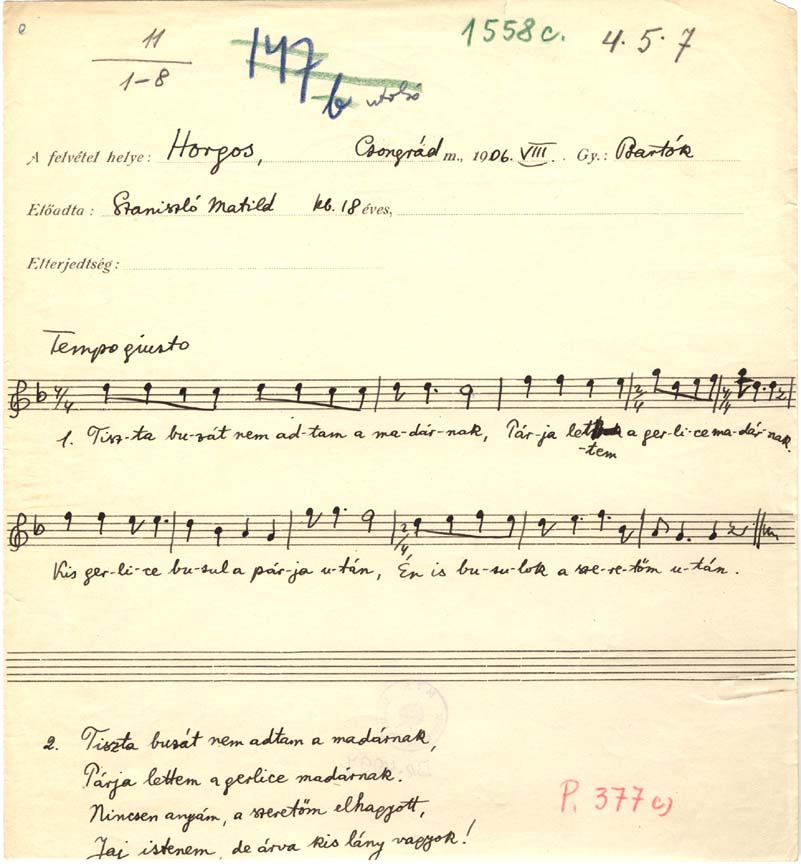 11
1-8
147
b utolsó
1558c.
4. 5. 7
A felvétel helye: Horgos, Csongrád m., 1906. VIII. Gy.: Bartók
Előadta: Szaniszló Matild kb. 18 éves,
Elterjedtség:
Tempo giusto
4/4 2/4 4/4
1. Tisz-ta bu-zát nem ad-tam a ma-dár-nak, Pár-ja let- a ger-li-ce ma-dár-nak.
-tem
2/4
Kis ger-li-ce bu-sul a pár-ja u-tán, Én is bu-su-lok a sze-re-tőm u-tán.
2. Tiszta buzát nem adtam a madárnak,
Párja lettem a gerlice madárnak.
Nincsen anyám, a szeretőm elhagyott,
Jaj istenem, de árva kis lány vagyok!
P. 377c)